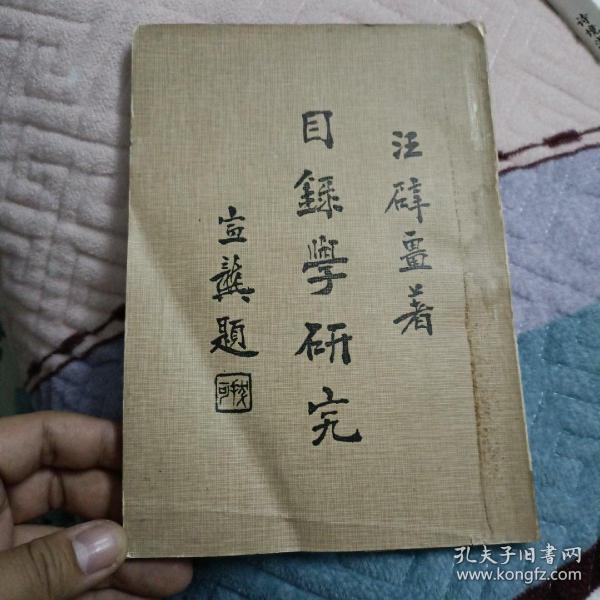 汪辟畺著
目錄學研究
宣龔題
孔夫子旧书网
www.kongfz.com